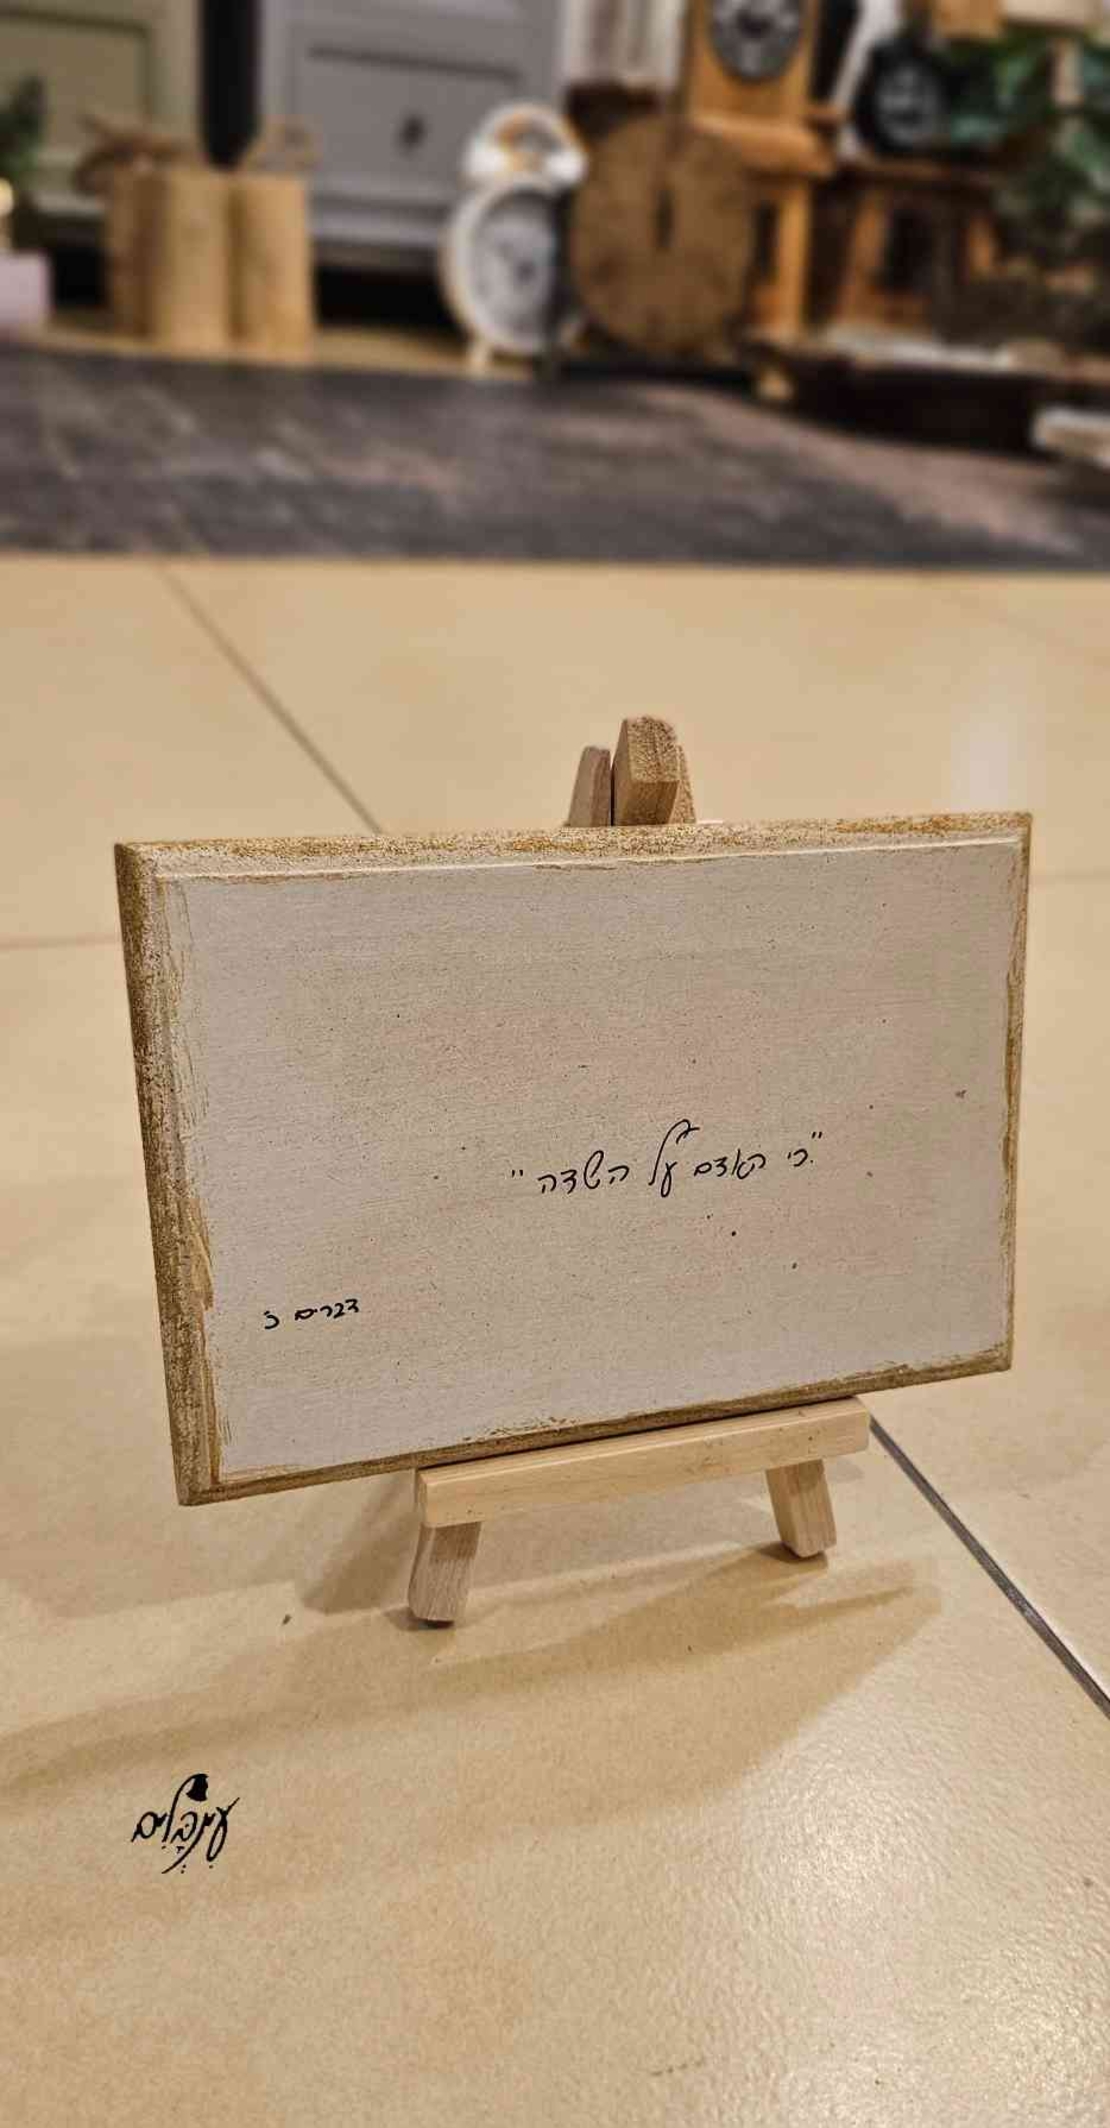 "כי האדם עץ השדה"
דברים כ'
עִנְבָּלִים